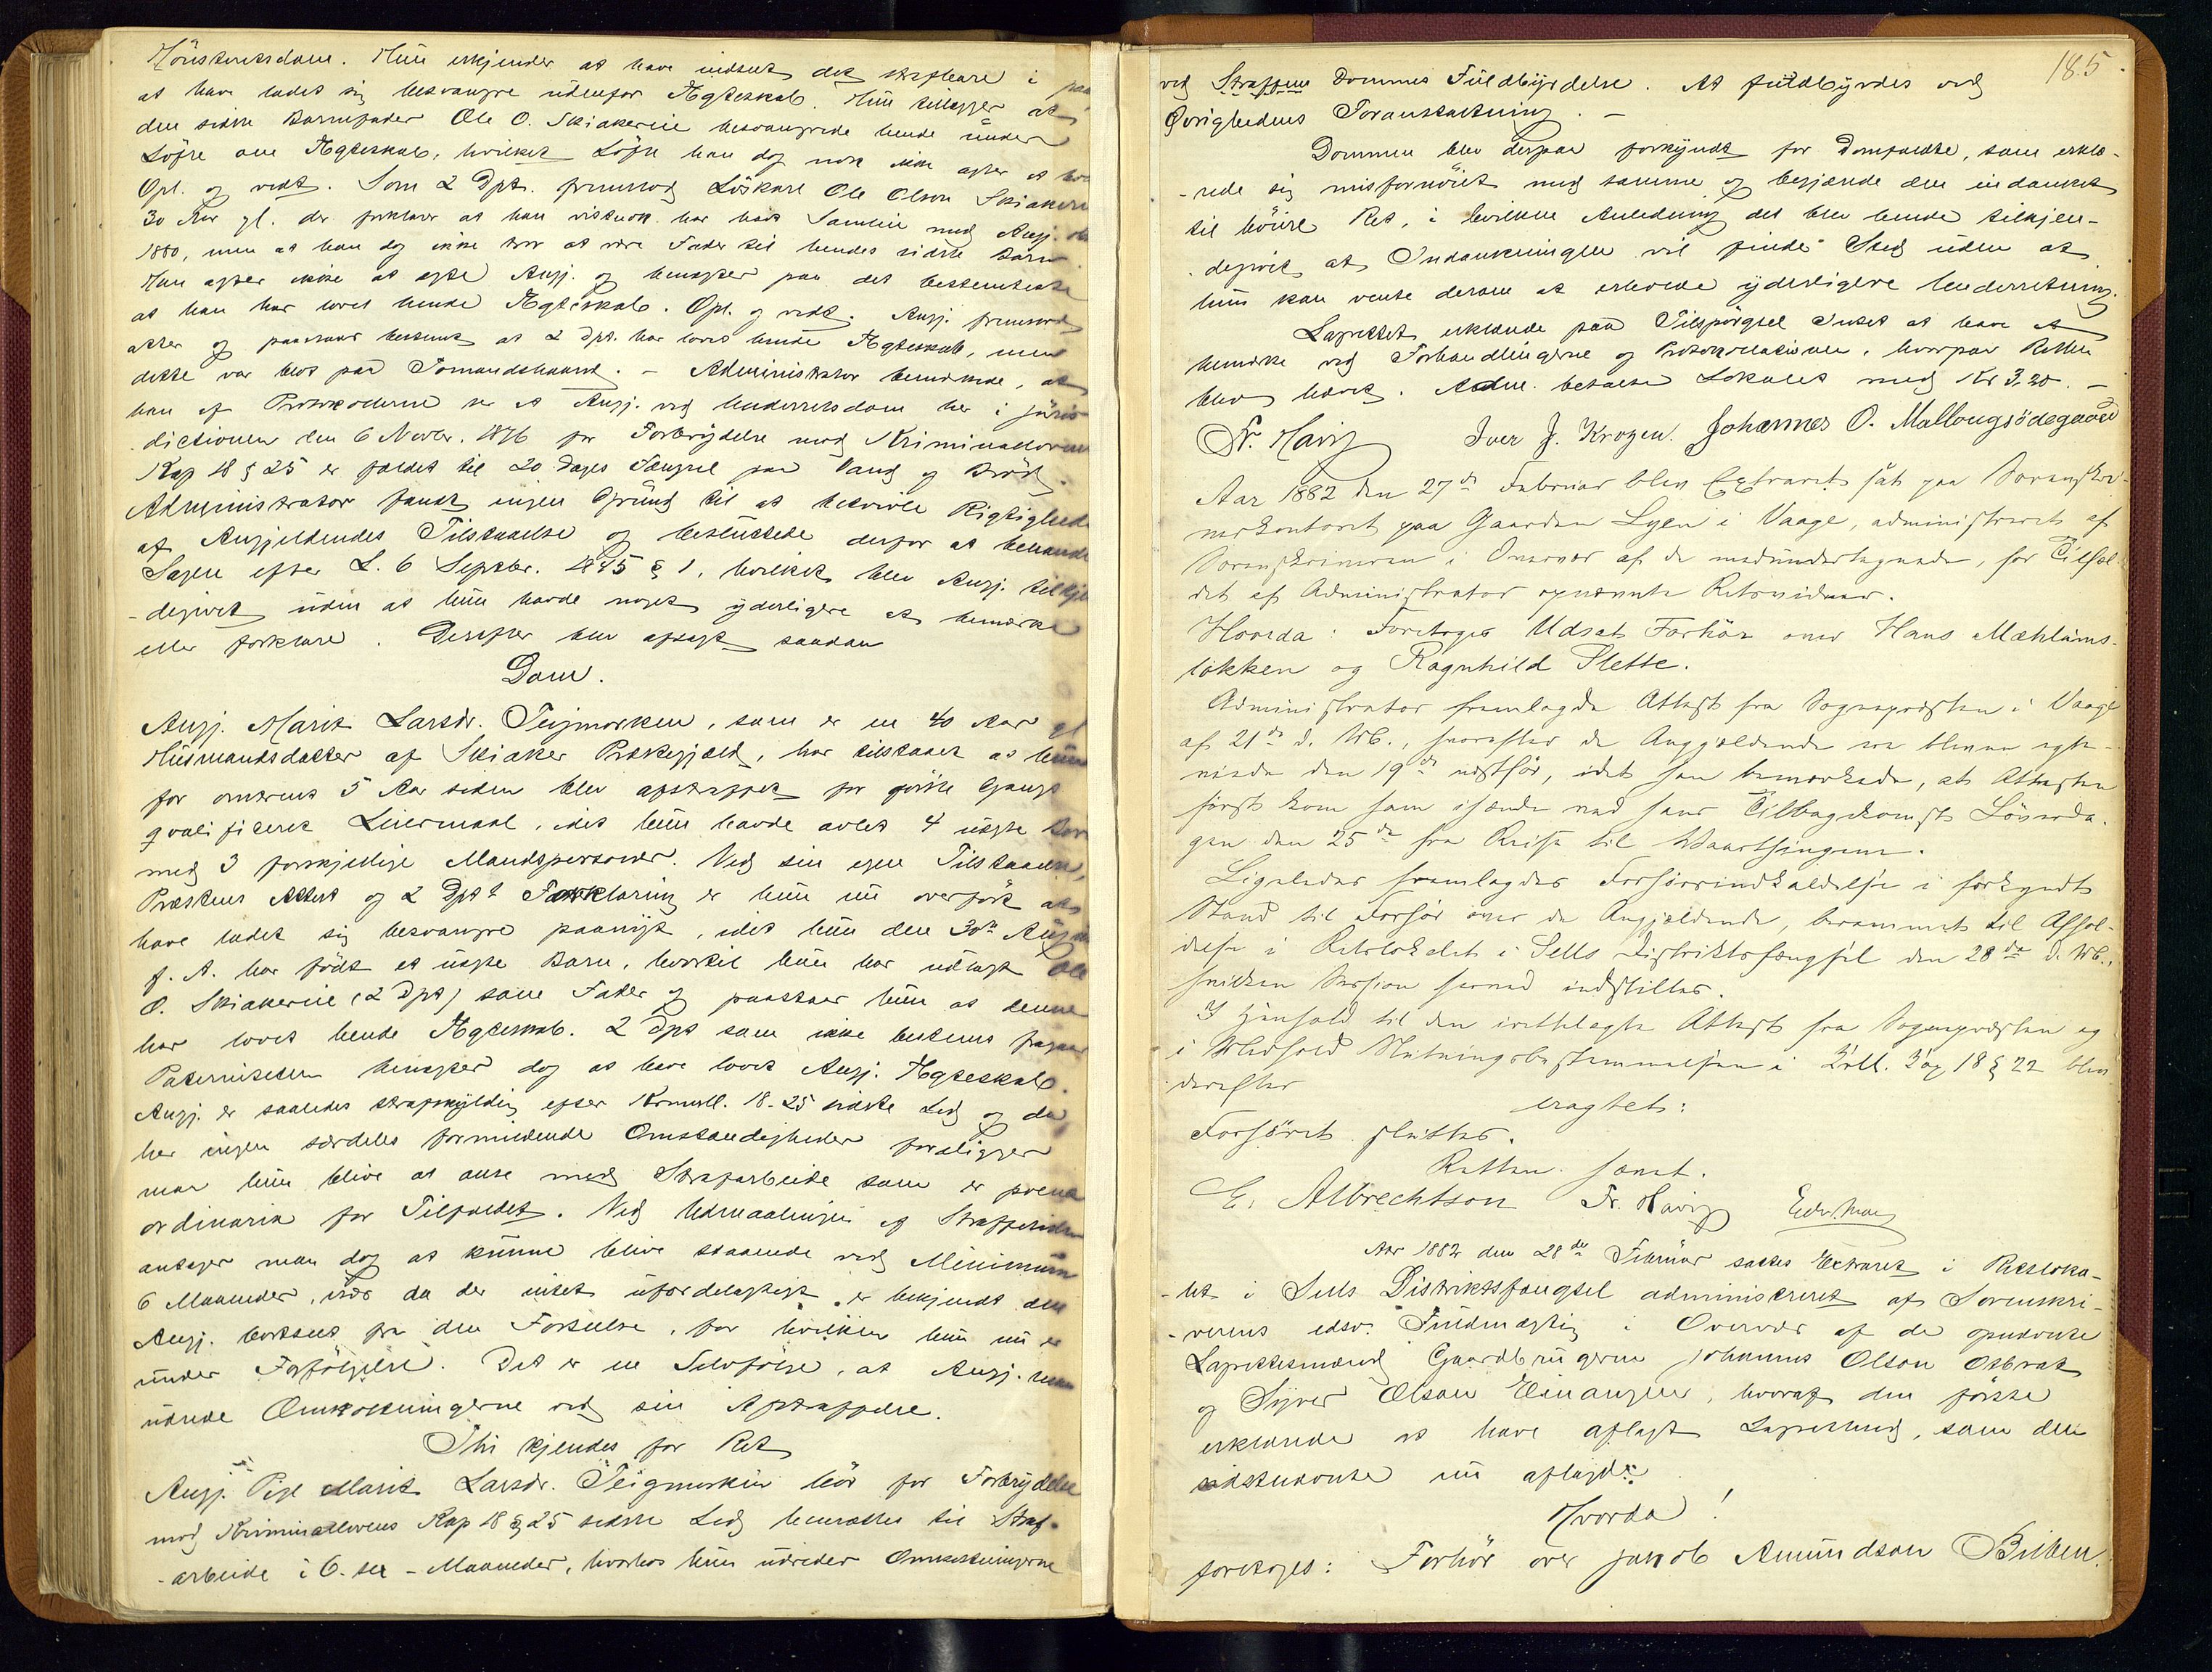 Höisteretsdom. Hun erkjender at have indseet det strafbare i
at have ladet sig besvangre udenfor Ægteskab. Hun tillægger at
den sidste Barnefader Ole O. Skiakerlie besvangrede hende under
Löfte om Ægteskab, hvilket Löfte han dog nok ikke agter at
Opl. og vedt. Som 2 Dpt. fremstod Löskarl Ole Olson
30 Aar gl. der forklarer at han vistnok har havt Samleie med Angj.
1880, men at han dog ikke tror at være Fader til hendes sidste Barn.
Han agter ikke at egte Angj. og benegter paa det bestemteste
at han har lovet hende Ægteskab. Opl. og vedt. Angj. fremstod
atter og paastaar bestemt at 2 Dpt. har lovet hende Ægteskab, men
dette var blot paa Tomandshaand. - Administrator bemærkede, at
han af Protokollerne ser at Angj. ved Underretsdom her i Juris-
dictionen den 6 Novbr. 1876 for Forbrydelse mod Kriminalloven
Kap 18 § 25 er fældet til 20 Dages Fængsel paa Vand og Bröd.
Administrator fandt ingen Grund til at betvivle Rigtigheden
af Angjeldendes Tilstaaelse og besluttede derfor at behandle
Sagen efter L. 6 Septbr. 1845 § 1, hvilket blev Angj. tilkjen-
-degivet uden at hun havde noget yderligere at bemærke
eller forklare. Derefter blev afsagt saadan
Dom.
Angj. Marit Larsdr. Teigmorken, som er en 40 Aar gl
Huusmandsdatter af Skiaker Præstegjæld, har tilstaaet at hun
for omtrent 5 Aar siden blev afstraffet for förste Gangs
qvalificeret Leiermaal, idet hun havde avlet 4 uægte
med 3 forskjellige Mandspersoner. Ved sin egen Tilstaaelse,
Præstens Attest og 2 Dpts Forklaring er hun nu overført at
have ladet sig besvangre paanyt, idet hun den 30te August
f. A. har födt et uægte Barn, hvortil hun har udlagt Ole
O. Skiakerlie (2 Dpt) som Fader og paastaar hun at denne
har lovet hende Ægteskab. 2 Dpt som ikke bestemt fragaar
Paterniteten benegter dog at have lovet Angj. Ægteskab.
Angj. er saaledes strafskyldig efter Krmll. 18-25 sidste Led og da
her ingen særdeles formildende Omstændigheder foreligger
maa hun blive at anse med Strafarbeide som er poena
ordinaria for Tilfældet. Ved Udmaalingen af Straffetiden
antager man dog at kunne blive staaende ved Minimum
6 Maaneder, især da der intet ufordelagtigt er bekjendt om
Angj. bortseet fra den Forseelse, for hvilken hun nu er
under Forfölgelse. Det er en Selvfölge, at Angj. maa
udrede Omkostningerne ved sin Afstraffelse.
Thi kjendes for Ret
Angj. Pige Marit Larsdr. Teigmorken bör for Forbrydelse
mod Kriminallovens Kap 18 § 25 sidste Led hensættes til Straf-
-arbeide i 6 - sex - Maaneder, hvorhos hun udreder Omkostningerne
185.
ved Straffens Dommens Fuldbyrdelse. At fuldbyrdes ved
Øvrighedens Foranstaltning. -
Dommen blev derpaa forkyndt for Domfældte, som erklæ-
-rede sig misfornöiet med samme og begjærede den indanket
til höiere Ret, i hvilken Anledning det blev hende tilkjen-
degivet at Indankningen vil finde Sted uden at
hun kan vente derom at erholde yderligere Underretning.
Lagrettet erklærede paa Tilspörgsel Intet at have at
bemærke ved Forhandlingerne og Protokollationen, hvorpaa Retten
blev hævet. Adm. betalte Lokalet med Kr 3,20. -
Fr. Havig Iver J. Krogen. Johannes O. Mallougsödegaard
Aar 1882 den 27de Februar blev Extraret sat paa Sorenskri-
verkontoret paa Gaarden Lyen i Vaage, administreret af
Sorenskriveren i Overvær af de medundertegnede, for Tilfæl-
det af Administrator opnævnte Retsvidner.
Hvorda: Foretoges Udsat Forhör over Hans Mæhlums-
løkken og Ragnhild Slette.
Administrator fremlagde Attest fra Sognepræsten i Vaage
af 21de d. Md., hvorefter de Angjældende ere blevne egte-
viede den 19de næstför, idet han bemærkede, at Attesten
först kom ham ihænde ved hans Tilbagekomst Löverda-
gen den 25de fra Reise til Vaartingene.
Ligeledes fremlagdes Forhörsindkaldelse i forkyndt
Stand til Forhör over de Angjældende, berammet til Afhol-
delse i Retslokalet i Sells Distriktsfængsel den 28de d. Md.,
hvilken Session herved indstilles.
I Henhold til den irettelagte Attest fra Sognepræsten og
i Medhold Slutningsbestemmelsen i Krll. Kap 18 § 22 blev
derefter
eragtet:
Forhöret sluttes.
Retten hævet.
E. Albrechtson Fr. Havig
Aar 1882 den 28de Februar sattes Extraret i Retsloka-
-let i Sells Distriktsfængsel administreret af Sorenskri-
-verens edsv. Fuldmægtig i Overvær af de opnævnte
Lagrettesmænd Gaardbrugerne Johannes Olson Oxbrat
og Syver Olson Einangen, hvoraf den förste
erklærede at have aflagt Lagretteed, som den
sidstnævnte nu aflagde.
Hvorda!
foretoges: Forhör over Jakob Amundson Bilben.